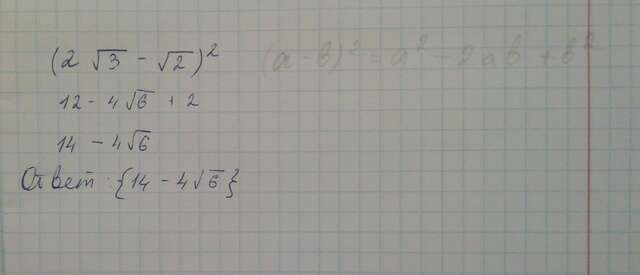 (2 √3 - √2)²
(a - b)² = a² - 2ab + b²
12 - 4√6 + 2
14 - 4√6
Ответ: {14 - 4√6}